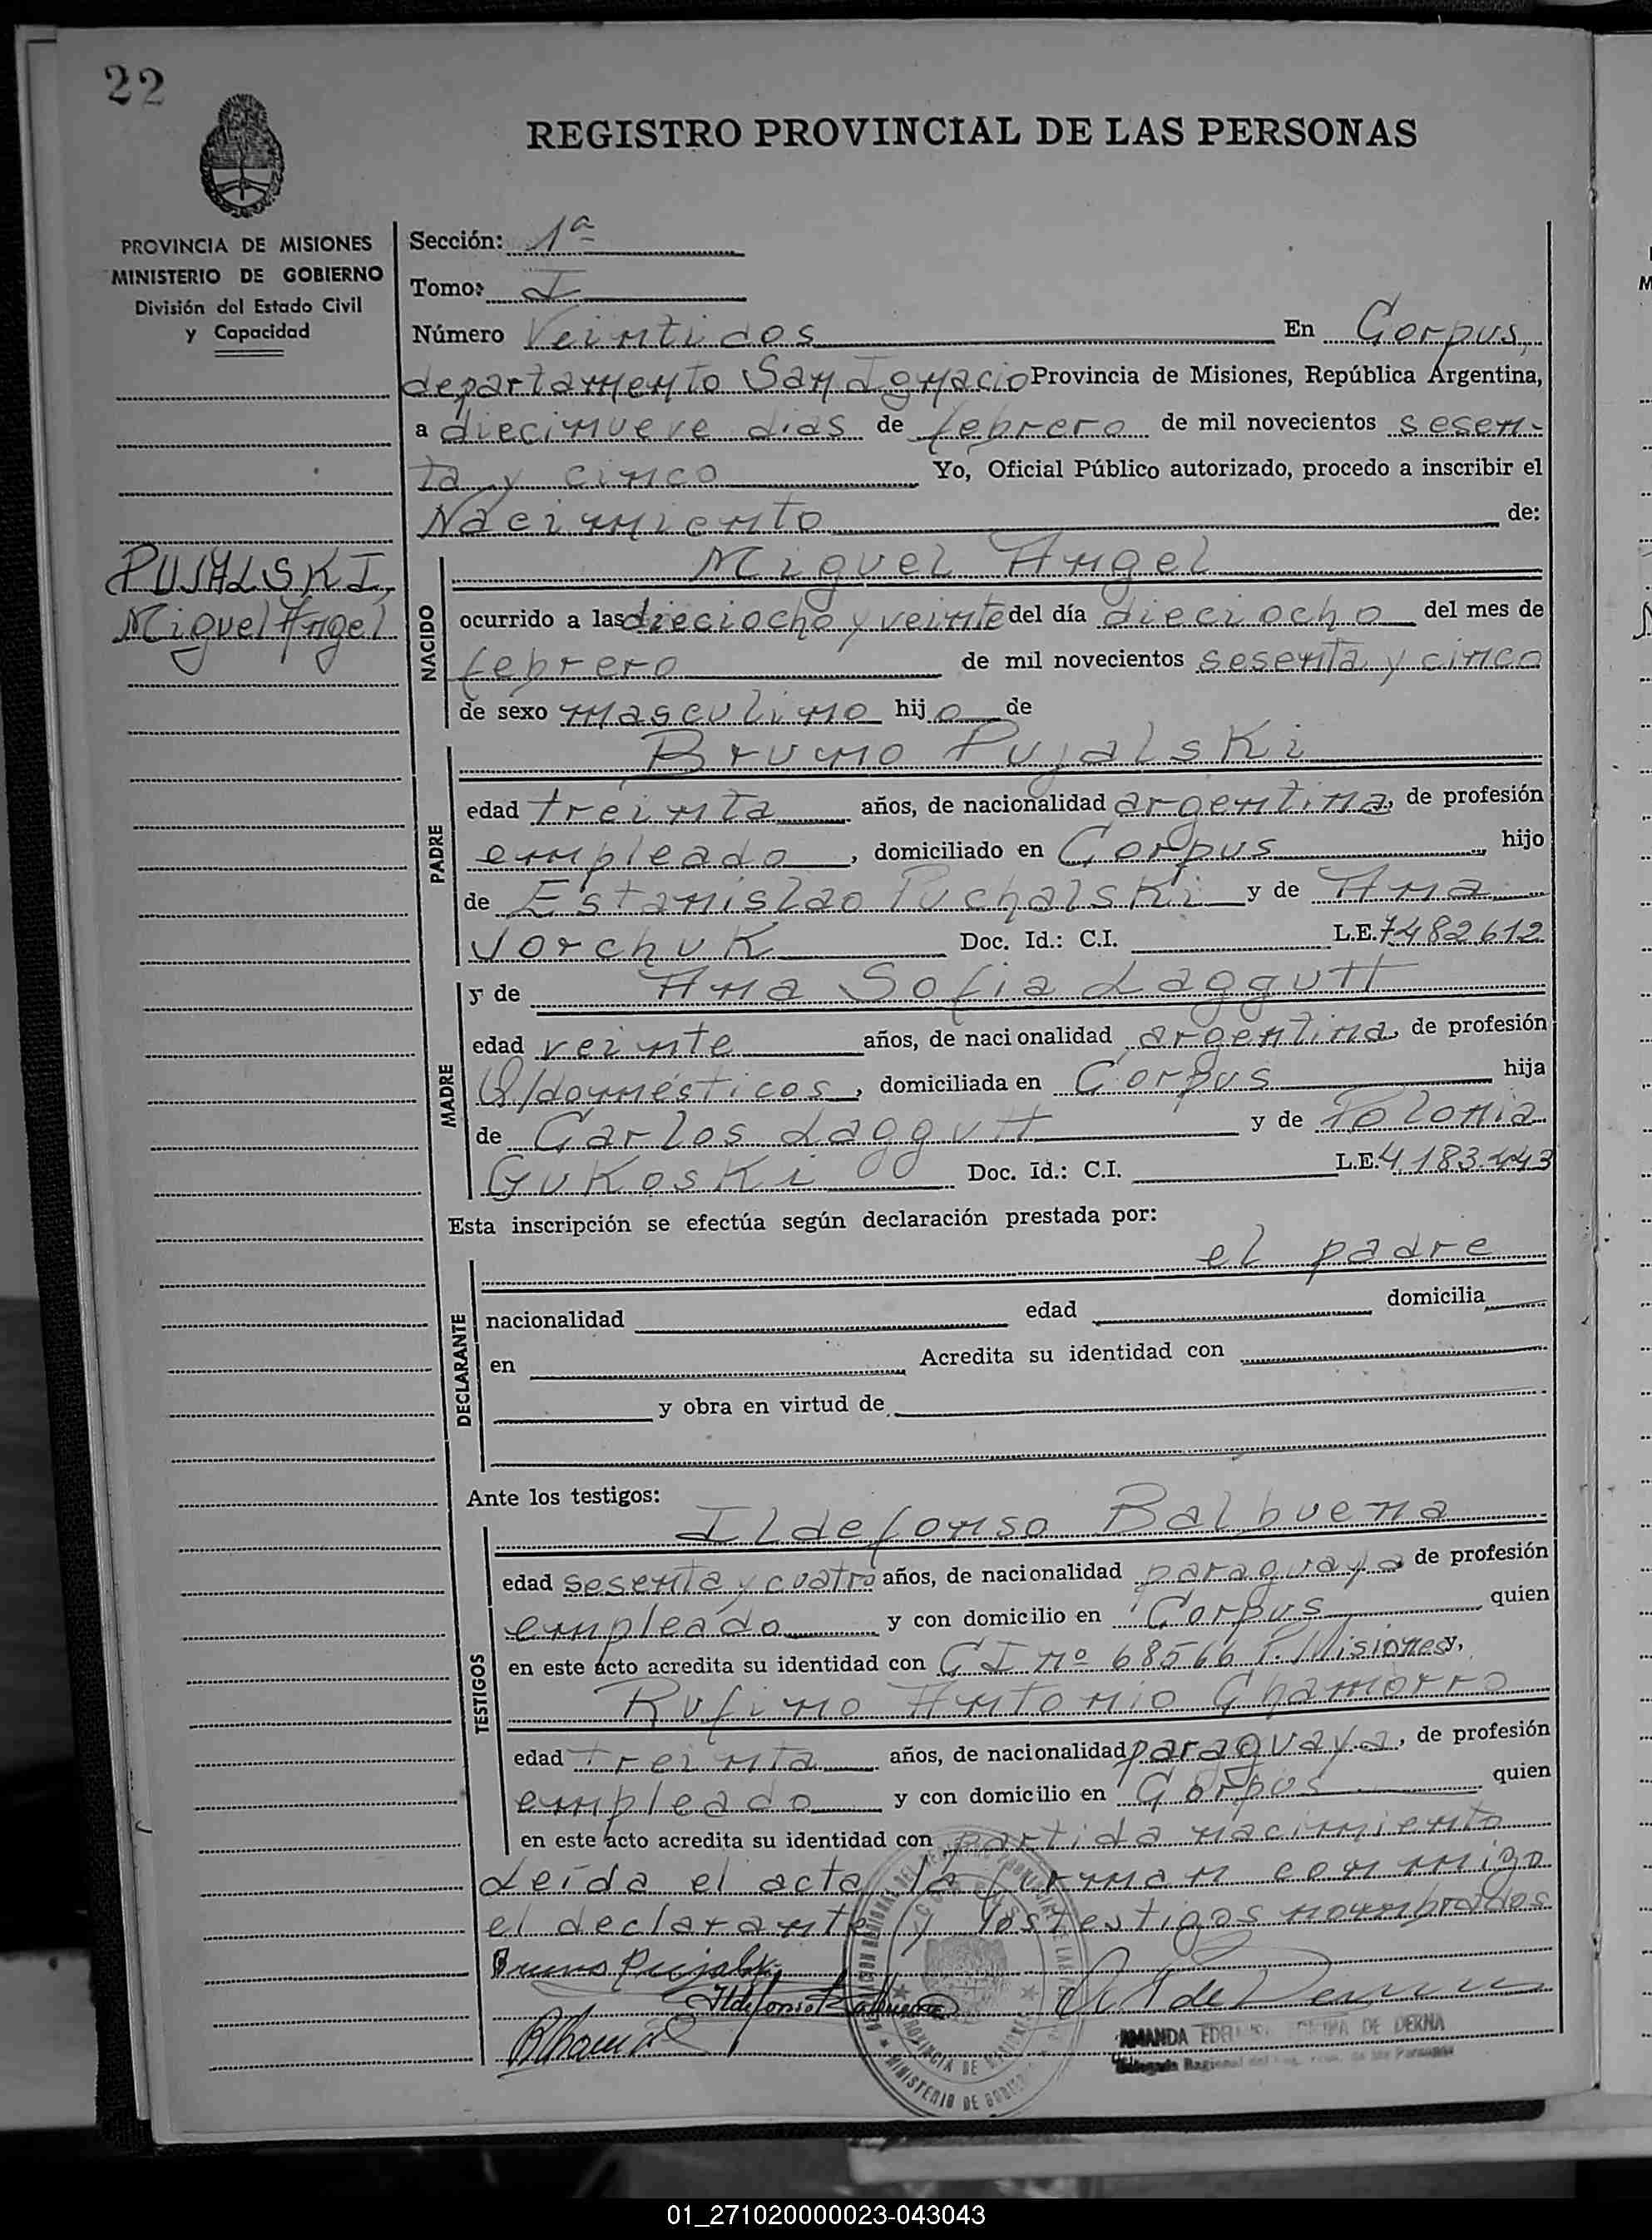 22
REGISTRO PROVINCIAL DE LAS PERSONAS
PROVINCIA DE MISIONES
MINISTERIO DE GOBIERNO
División del Estado Civil
y Capacidad
PUJALSKI,
Miguel Angel
Sección: 1ª
Tomo: I
Número Veintidos En Corpus,
departamento San Ignacio Provincia de Misiones, República Argentina,
a diecinueve dias de febrero de mil novecientos sesen-
ta y cinco Yo, Oficial Público autorizado, procedo a inscribir el
Nacimiento de:
NACIDO
Miguel Angel
ocurrido a las dieciocho y veinte del día dieciocho del mes de
febrero de mil novecientos sesenta y cinco
de sexo masculino hijo de
PADRE
Bruno Pujalski
edad treinta años, de nacionalidad argentina, de profesión
empleado, domiciliado en Corpus hijo
de Estanislao Puchalski y de Ana
Jorchuk Doc. Id.: C.I. L.E. 7482612
MADRE
y de Ana Sofia Laggutt
edad veinte años, de nacionalidad argentina, de profesión
Q/domésticos, domiciliada en Corpus hija
de Carlos Laggutt y de Polonia
Gukoski Doc. Id.: C.I. L.E. 4.183.443
Esta inscripción se efectúa según declaración prestada por:
DECLARANTE
el padre
nacionalidad edad domicilia
en Acredita su identidad con
y obra en virtud de
Ante los testigos:
TESTIGOS
Ildefonso Balbuena
edad sesenta y cuatro años, de nacionalidad paraguaya de profesión
empleado y con domicilio en Corpus quien
en este acto acredita su identidad con CI nº 68566 P. Misiones y,
Rufino Antonio Chamorro
edad treinta años, de nacionalidad paraguaya, de profesión
empleado y con domicilio en Corpus quien
en este acto acredita su identidad con partida nacimiento
Leída el acta la firman conmigo
el declarante y los testigos nombrados
Bruno Pujalski
Ildefonso Balbuena
AMANDA DE DERNA
Delegada Regional
MINISTERIO DE GOBIERNO
PROVINCIA DE MISIONES
01_271020000023-043043